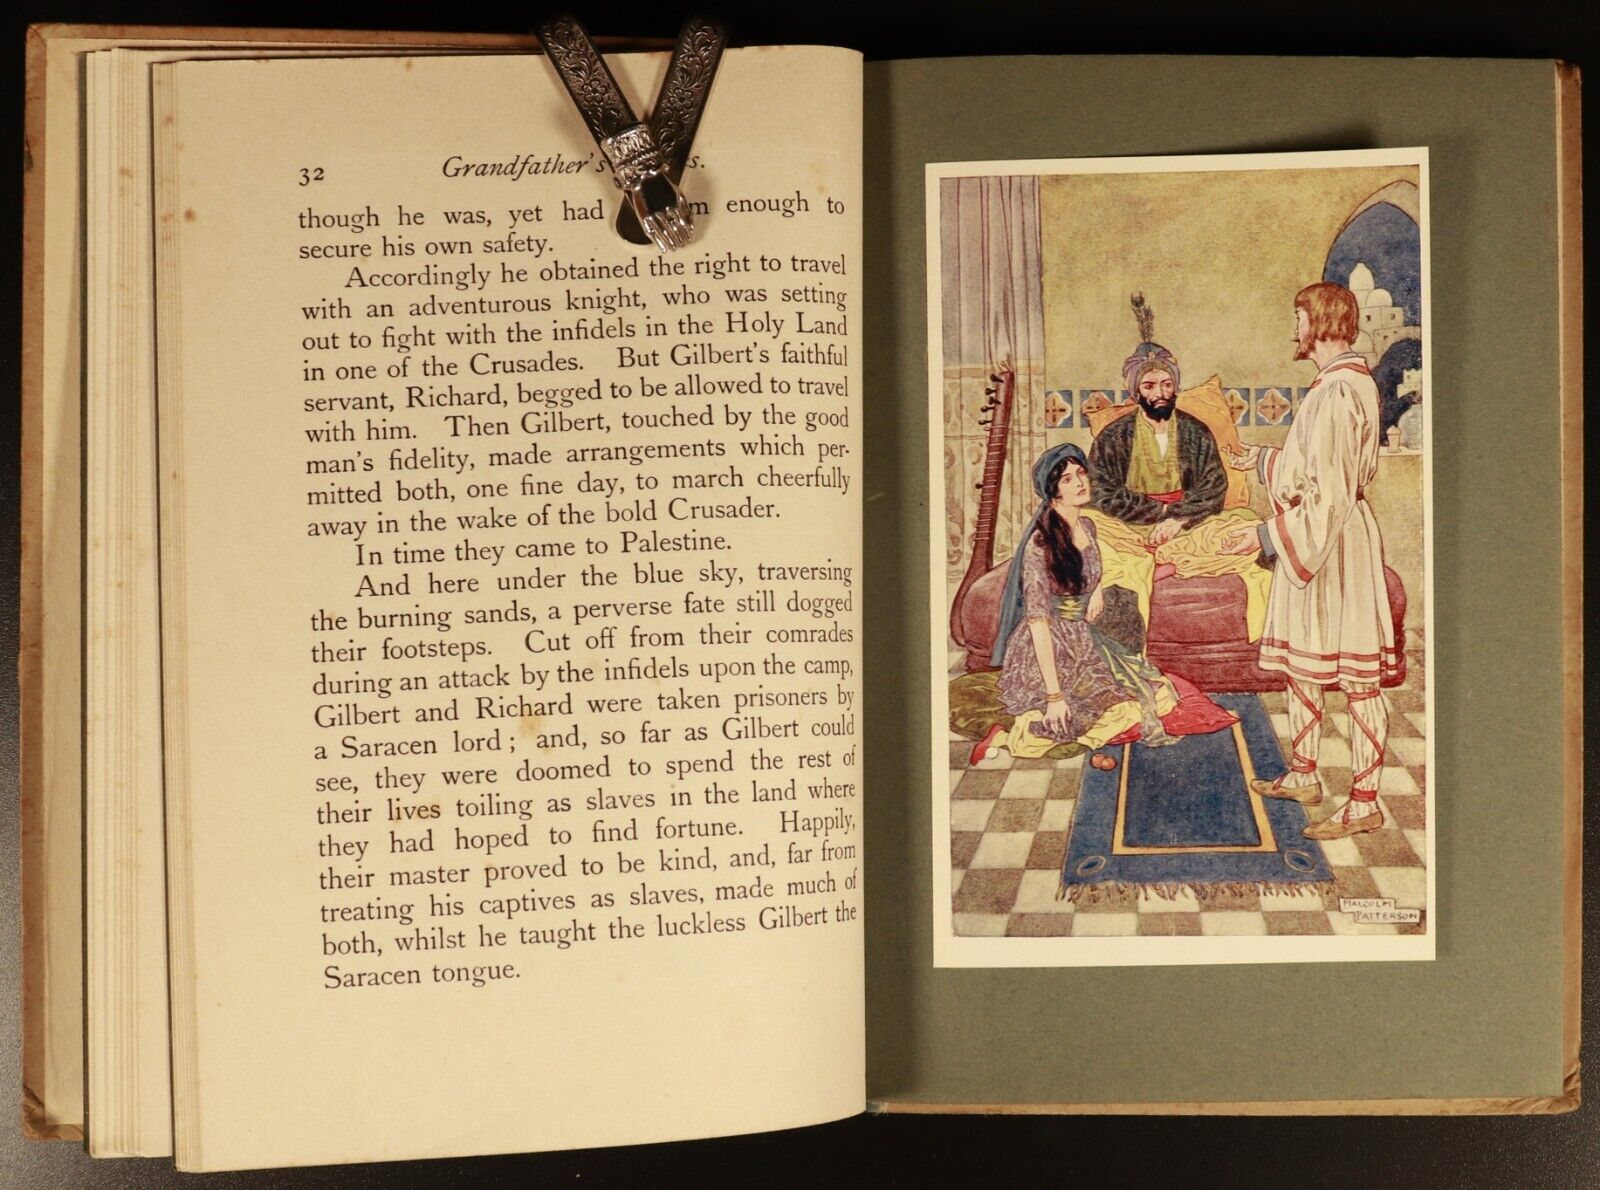 32 Grandfather's
though he was, yet had enough to
secure his own safety.
Accordingly he obtained the right to travel
with an adventurous knight, who was setting
out to fight with the infidels in the Holy Land
in one of the Crusades. But Gilbert's faithful
servant, Richard, begged to be allowed to travel
with him. Then Gilbert, touched by the good
man's fidelity, made arrangements which per-
mitted both, one fine day, to march cheerfully
away in the wake of the bold Crusader.
In time they came to Palestine.
And here under the blue sky, traversing
the burning sands, a perverse fate still dogged
their footsteps. Cut off from their comrades
during an attack by the infidels upon the camp,
Gilbert and Richard were taken prisoners by
a Saracen lord; and, so far as Gilbert could
see, they were doomed to spend the rest of
their lives toiling as slaves in the land where
they had hoped to find fortune. Happily,
their master proved to be kind, and, far from
treating his captives as slaves, made much of
both, whilst he taught the luckless Gilbert the
Saracen tongue.
MALCOLM
PATTERSON